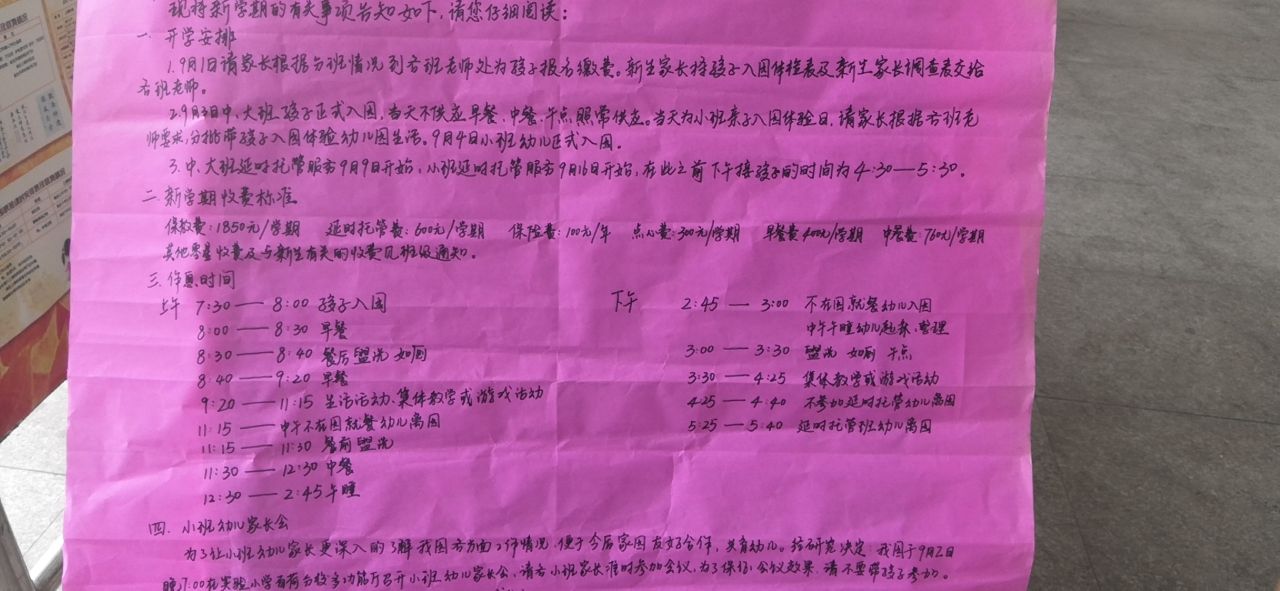 现将新学期的有关事项告知如下，请您仔细阅读：
一．开学安排
1.9月1日请家长根据分班情况到各班老师处为孩子报名缴费。新生家长将孩子入园体检表及新生家长调查表交给
各班老师。
2.9月3日中、大班孩子正式入园，当天不供应早餐，中餐、午点照常供应。当天为小班亲子入园体验日，请家长根据各班老
师要求，分批带孩子入园体验幼儿园生活。9月4日小班幼儿正式入园．
3.中、大班延时托管服务9月9日开始，小班延时托管服务9月16日开始，在此之前下午接孩子的时间为4:30—5:30。
二．新学期收费标准
保教费：1850元/学期 延时托管费：600元/学期 保险费：100元/年 点心费：300元/学期 早餐费400元/学期 中餐费：760元/学期
其他零星收费及与新生有关的收费见班级通知。
三．作息时间
上午 7:30——8:00 孩子入园
8:00——8:30 早餐
8:30——8:40 餐后盥洗 如厕
8:40——9:20 早餐
9:20——11:15 生活活动、集体教学或游戏活动
11:15——中午不在园就餐幼儿离园
11:15——11:30 餐前盥洗
11:30——12:30 中餐
12:30——2:45 午睡
下午 2:45——3:00 不在园就餐幼儿入园
中午午睡幼儿起床、整理
3:00——3:30 盥洗 如厕 午点
3:30——4:25 集体教学或游戏活动
4:25——4:40 不参加延时托管幼儿离园
5:25——5:40 延时托管班幼儿离园
四．小班幼儿家长会
为了让小班幼儿家长更深入的了解我园各方面工作情况，便于今后家园友好合作，共育幼儿。经研究决定：我园于9月2日
晚7:00在实验小学 多功能厅召开小班幼儿家长会，请各小班家长准时参加会议，为了保证会议效果，请不要带孩子参加。